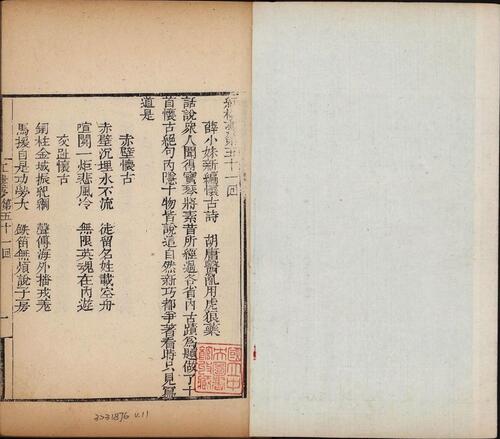 紅樓夢第五十一回
薛小妹新編懷古詩 胡庸醫亂用虎狼藥
話說衆人聞得寳琴將素昔所經過各省內古蹟爲題做了十
首懷古絕句內隱十物皆說這自然新巧都爭着看時只見寫
道是
赤壁懷古
赤壁沉埋水不流 徒留名姓載空舟
喧闐一炬悲風冷 無限英魂在內遊
交趾懷古
銅柱金城振紀綱 聲傳海外播戎羌
馬援自是功勞大 鐵笛無煩說子房
紅樓夢 第五十一回 一
3531876 v.11